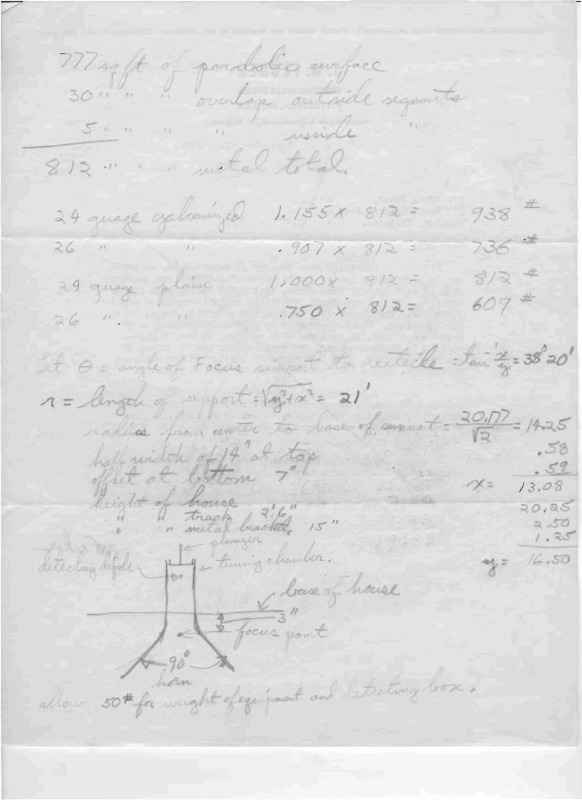 777 sq ft of parabolic surface
30 " " " overlap outside segments
5 " " " " inside "
812 " " " metal total.
24 guage galvanized 1.155 x 812 = 938 #
26 " " .907 x 812 = 736 #
24 guage plain 1.000 x 812 = 812 #
26 " " .750 x 812 = 609 #
Let θ = angle of Focus support to verticle = tan⁻¹ x/y = 38° 20'
r = length of support = √y²+x² = 21'
radius from center to base of support = 20.17/√2 = 14.25
half width of 14" at top .58
offset at bottom 7" .59
x = 13.08
height of house 20.25
" " track 2' 6" 2.50
" " metal bracket, 15" 1.25
y = 16.50
plunger
detecting dipole
tuning chamber.
base of house
3"
focus point
90°
horn
allow 50# for weight of equipment and detecting box.